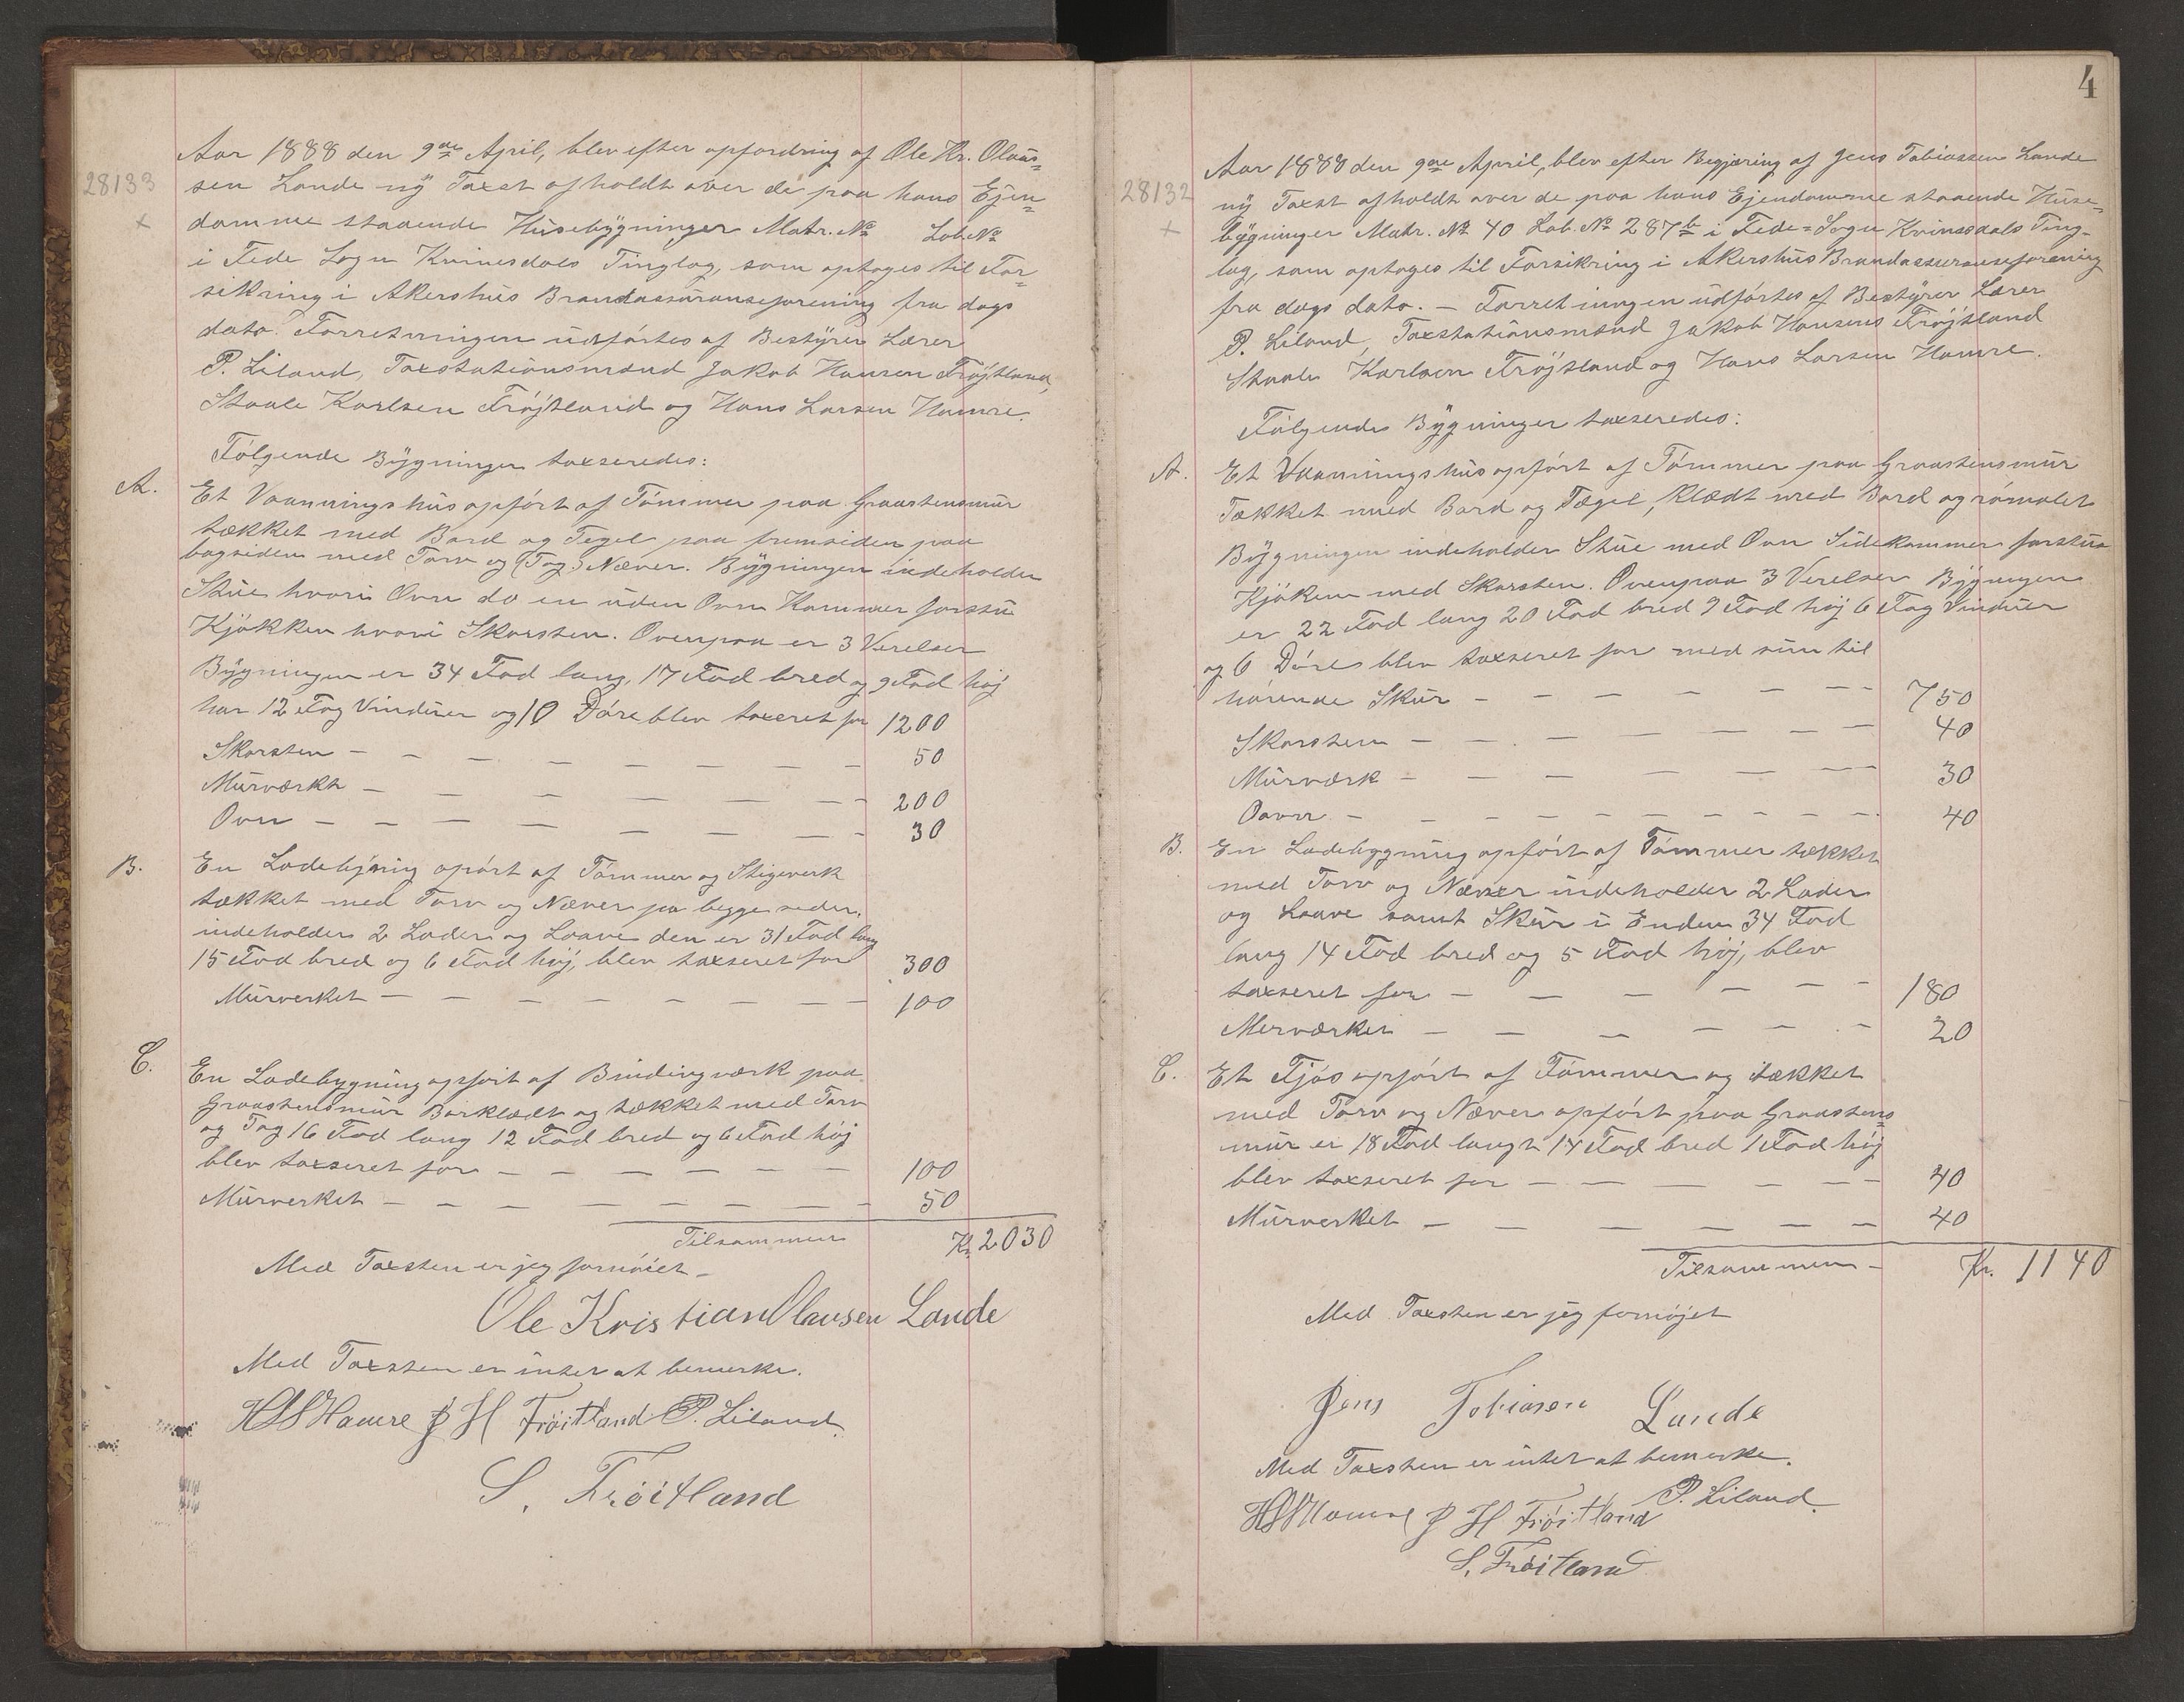 28133
Aar 1888 den 9de April, blev efter opfordring af Ole Kr. Olaus=
sen Lande ny Taxst afholdt over de paa hans Ejen=
domme staaende Husebygninger Matr. No Lob. No
i Fede Sogn Kvinesdals Tinglag, som optages til For=
sikring i Akershus Brandassuranseforening fra dags
dato. Forretningen udførtes af Bestyrer Lærer
P. Liland, Taxstationsmænd Jakob Hansen Frøjtland,
Staale Karlsen Frøjtland og Hans Larsen Hamre.
Følgende Bygninger taxseredes:
A. Et Vaaningshus opført af Tømmer paa Graastensmur
tækket med Bord og Tegel paa fremsiden paa
bagsiden med Torv og (Tag) Næver. Bygningen indeholder
Stue hvori Ovn do en uden Ovn Kammer forstue
Kjøkken hvori Skorsten. Ovenpaa er 3 Verelser
Bygningen er 34 Fod lang, 17 Fod bred og 9 Fod høj
har 12 Fag Vinduer og 10 Døre blev taxeret for 1200
Skorsten — — — — — — — 50
Murværkt — — — — — — — 200
Ovn — — — — — — — 30
B. En Ladebyning opørt af Tømmer og Stigeverk
tækket med Torv og Næver pa begge seder.
indeholder 2 Lader og Laave den er 31 Fod lang
15 Fod bred og 6 Fod høj, blev taxseret for 300
Murverket — — — — — — — 100
C. En Ladebygning opført af Bindingværk paa
Graastensmur Borklædt og tækket med Torv
og Tag 16 Fod lang 12 Fod bred og 6 Fod høj
blev taxseret for — — — — — — 100
Murverket — — — — — — — 50
Tilsammen Kr. 2030
Med Taxsten er jeg fornøiet —
Ole Kristian Olausen Lande
Med Taxsten er intet at bemerke.
HLS Hamre J H Frøitland P. Liland.
S. Frøitland
4
28132
Aar 1888 den 9de April, blev efter Begjæring af Jens Tobiassen Lande
ny Taxst afholdt over de paa hans Ejendomme staaende Huse=
bygninger Matr. No 40 Lob. No 287b i Fede=Sogn Kvinesdals Ting=
lag, som optages til Forsikring i Akershus Brandassuranseforening
fra dags dato. — Forretningen udførtes af Bestyrer Lærer
P. Liland, Taxstationsmænd Jakob Hansens Frøjtland
Staale Karlsen Frøjtland og Hans Larsen Hamre.
Følgende Bygninger taxseredes:
A. Et Vaaningshus opført af Tømmer paa Graastensmur
Tækket med Bord og Tægel, Klædt med Bord og rømalet
Bygningen indeholder Stue med Ovn Sidekammer forstue
Kjøkken med Skorsten. Ovenpaa 3 Verelser Bygningen
er 22 Fod lang 20 Fod bred 9 Fod høj 6 Fag Vinduer
og 6 Døre blev taxseret for med sin til
hørende Skur — — — — — — 750
Skorsten — — — — — — 40
Murværk — — — — — — 30
Oavn — — — — — — — — 40
B. En Ladebygning opført af Tømmer tækket
med Torv og Næver indeholder 2 Lader
og Laave samt Skur i Enden 34 Fod
lang 14 Fod bred og 5 Fod høj, blev
taxseret for — — — — — — 180
Merværket — — — — — — 20
C. Et Fjøs opført af Tømmer og tækket
med Torv og Næver opført paa Graastens=
mur er 18 Fod langt 14 Fod bred 1 Fod høj
blev taxseret for — — — — — — 40
Murverket — — — — — — 40
Tilsammen — Kr. 1140
Med Taxsten er jeg fornøjet
Jens Tobiasen Lande
Med Taxsten er intet at bemerke.
P. Liland.
HLS Hamre J H Frøitland
S. Frøitland